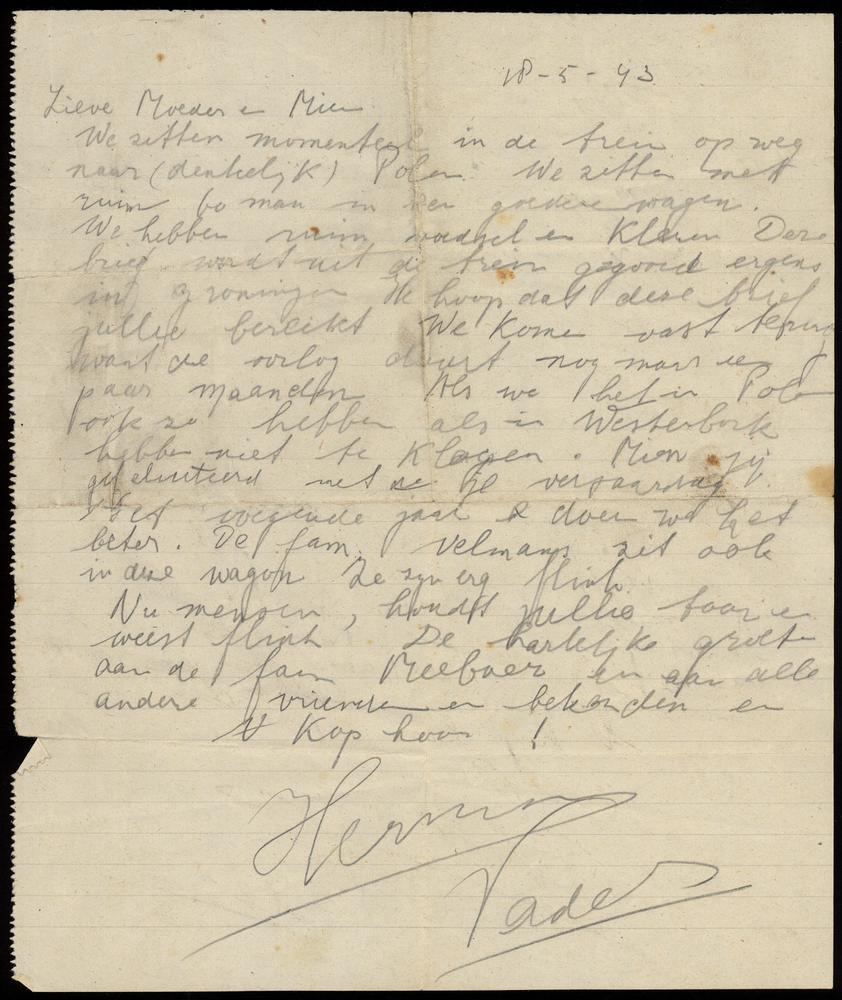 18-5-43
Lieve Moeder en Mien
We zitten momenteel in de trein op weg
naar (denkelijk) Polen. We zitten mett
ruim 60 man in een goedere wagen.
We hebben ruim voedsel en Kleren Deze
brief wordt uit de trein gegooid ergens
in Groningen Ik hoop dat deze brief
jullie bereikt We Komen vast terug
want de oorlog duurt nog maar een
paar maanden Als we het in Polen
ook zo hebben als in Westerbork
hebben niet te Klagen. Mien jij
gefeliciteerd met je verjaardag.
Het volgende jaar doen we het
beter. De fam. Velmans zit ook
in deze wagon Ze zijn erg flink
Nu mensen, houdt jullie taai en
weest flink De hartelijke groeten
aan de fam Meeboer en aan alle
andere vrienden en bekenden en
Kop hoog !
Herman
Vader